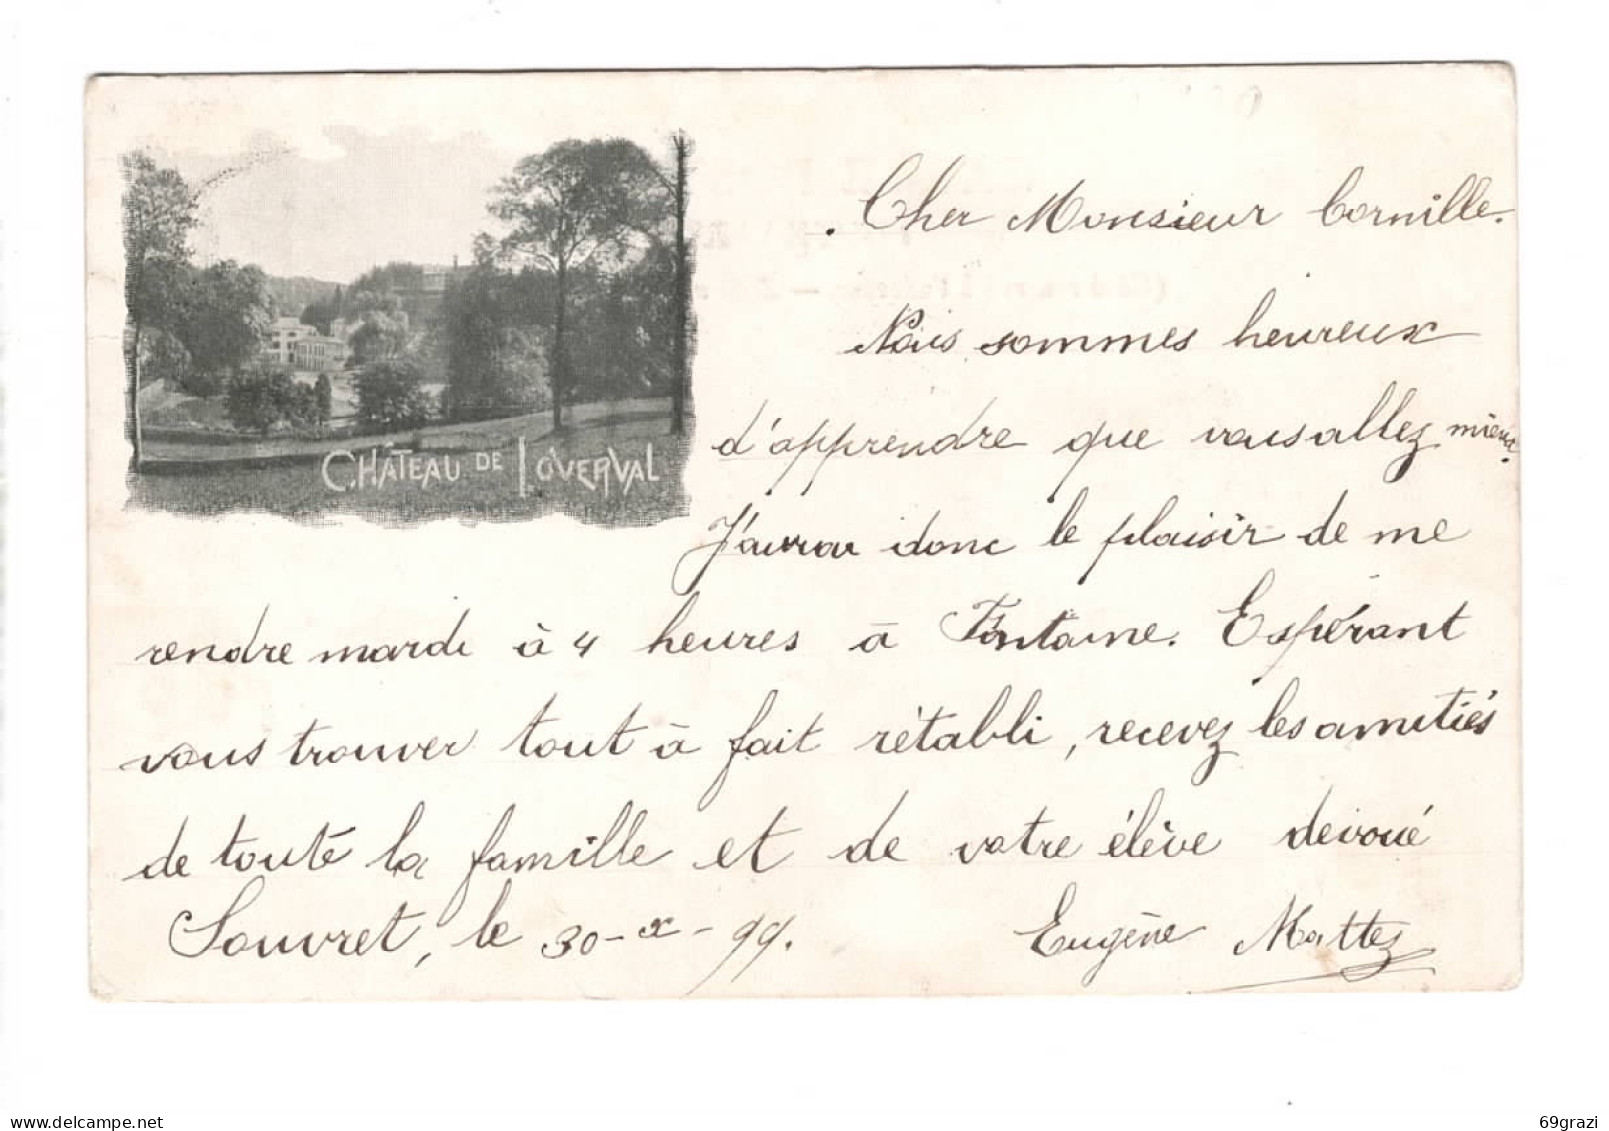 Cher Monsieur Cornille.
Nous sommes heureux
d'apprendre que vous allez mieux.
J'aurai donc le plaisir de me
rendre mardi à 4 heures à Fontaine. Espérant
vous trouver tout à fait rétabli, recevez les amitiés
de toute la famille et de votre élève dévoué
Souvret, le 30-X-99.
Eugène Mattez
CHÂTEAU DE LOVERVAL
www.delcampe.net
69grazi